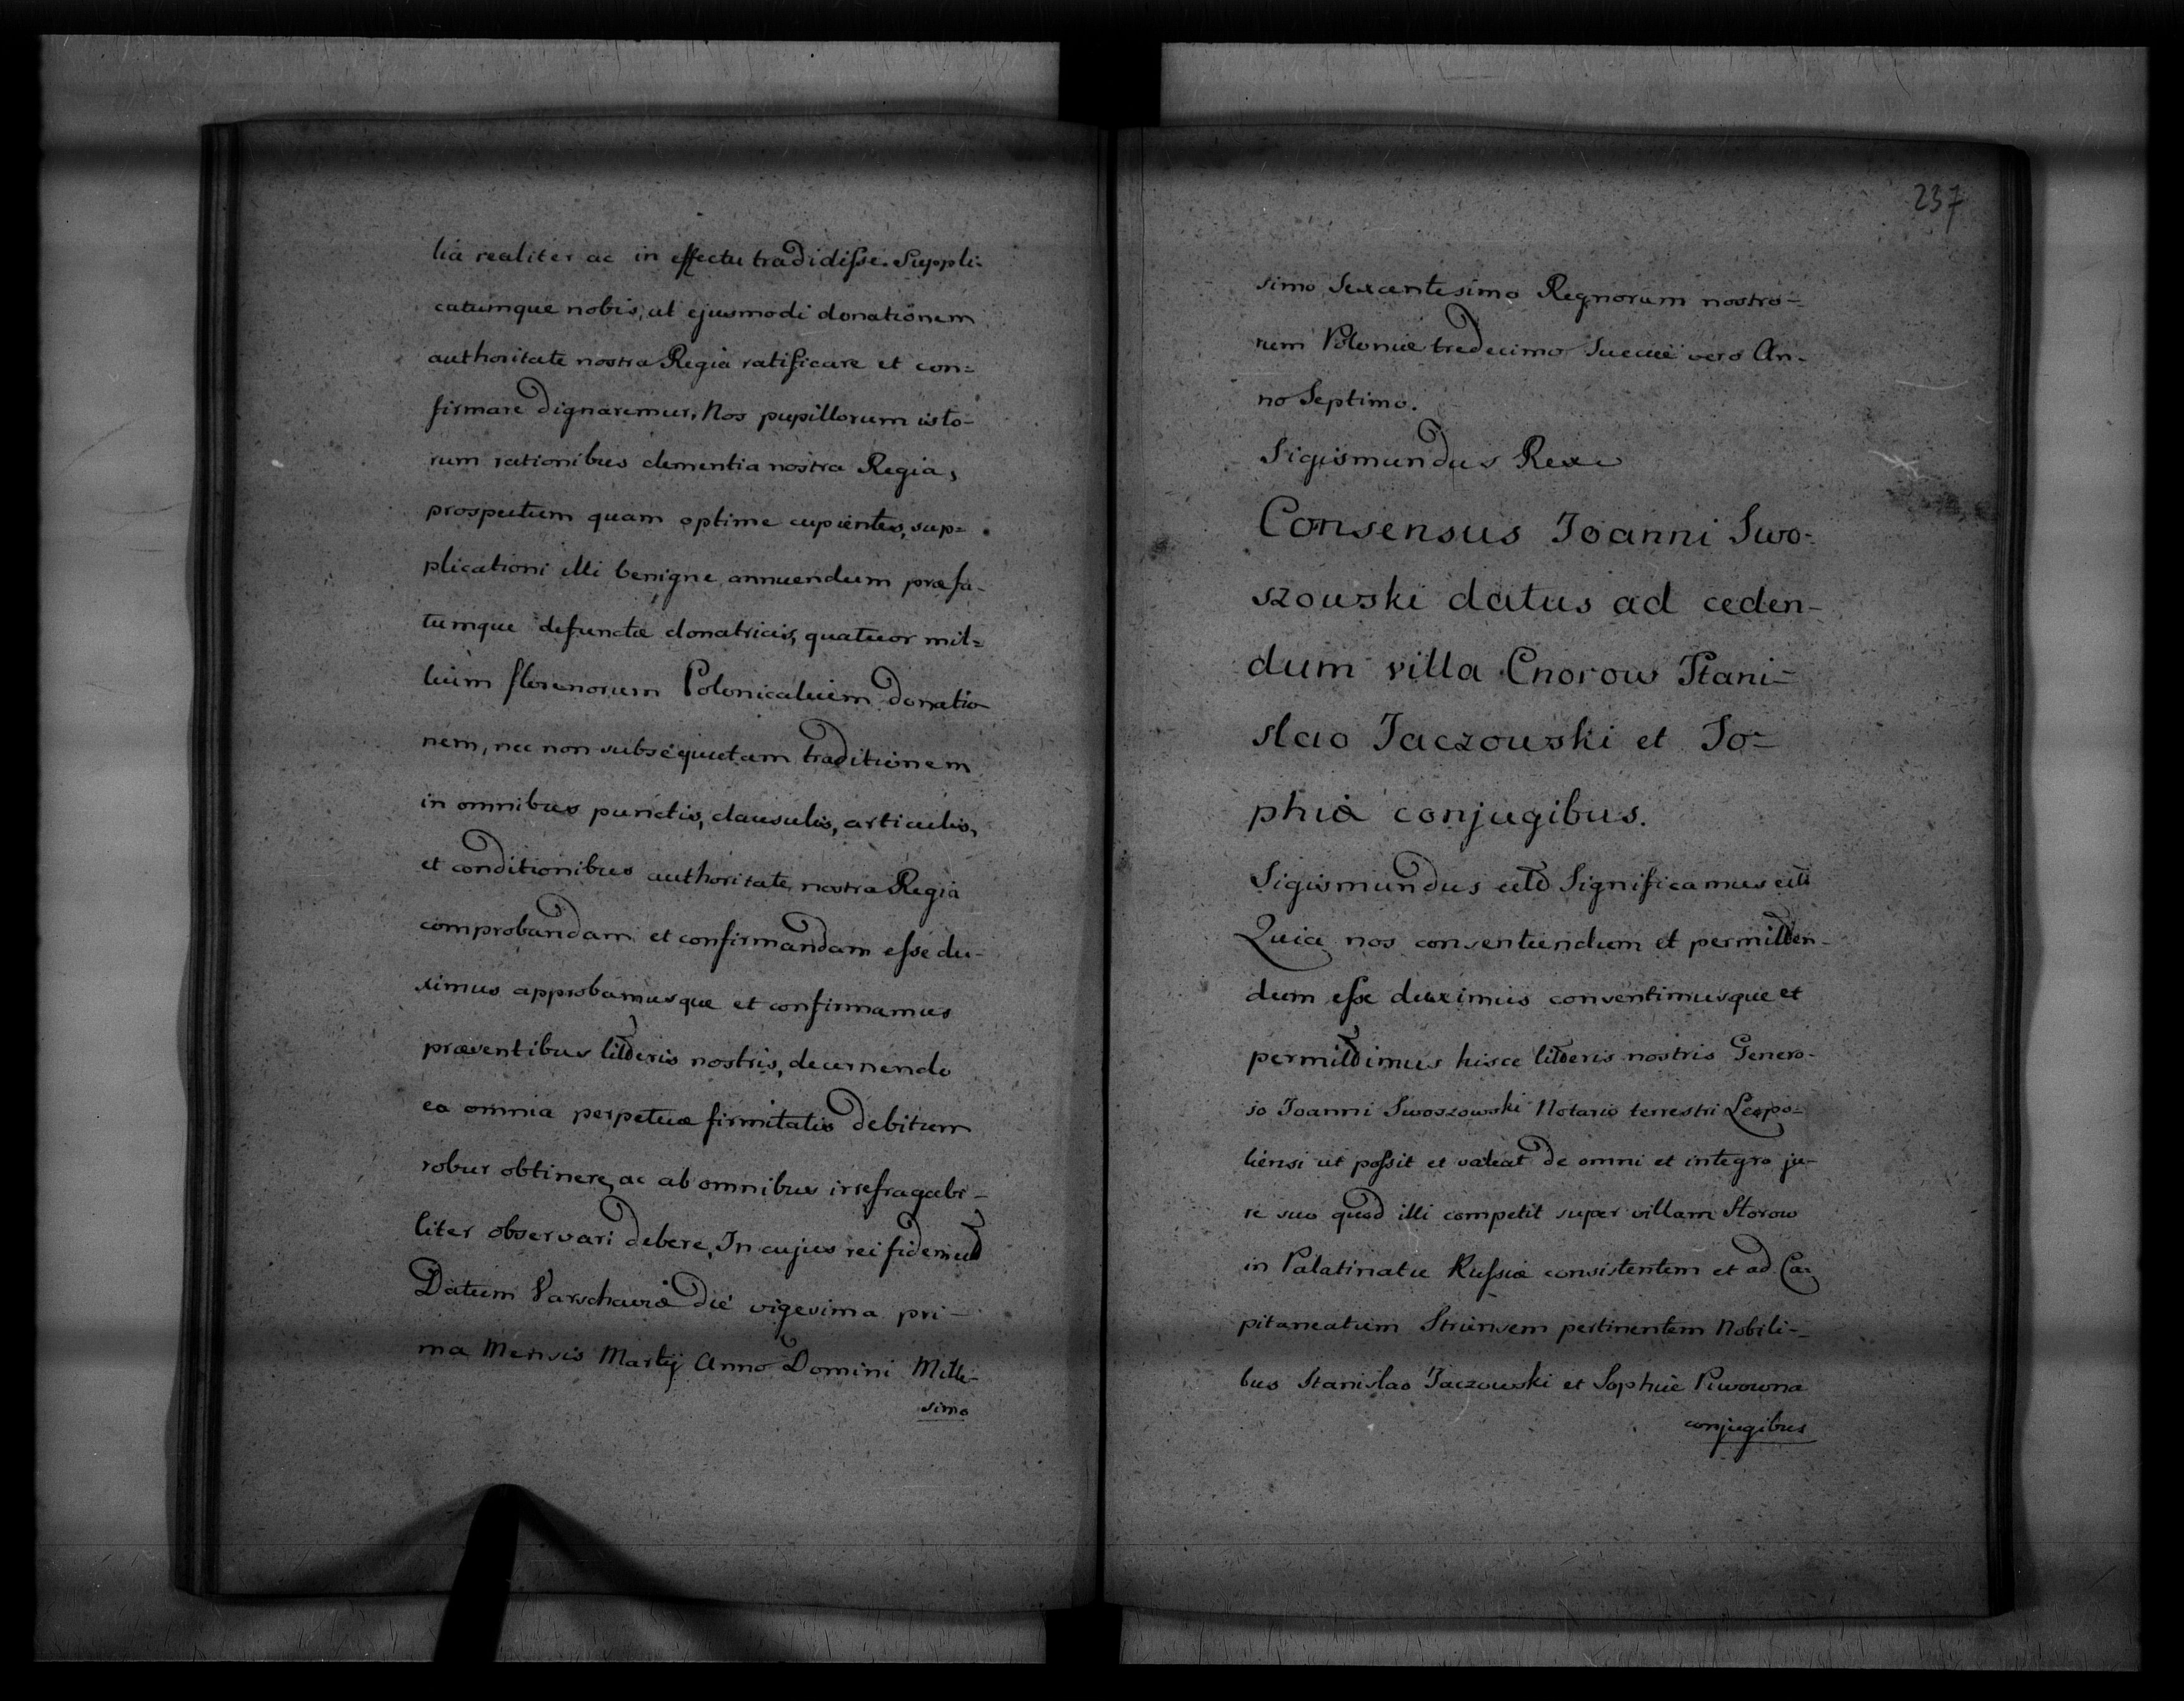 lia realiter ac in effectu tradidisse. Suppli-
catumque nobis, ut ejusmodi donationem
authoritate nostra Regia ratificare et con=
firmare dignaremur. Nos pupillorum isto-
rum rationibus clementia nostra Regia,
prospectum quam optime cupientes, sup=
plicationi illi benigne annuendum præfa-
tumque defunctæ donatricis, quatuor mil=
lium florenorum Polonicalium donatio-
nem, nec non subsequutam traditionem
in omnibus punctis, clausulis, articulis,
et conditionibus authoritate nostra Regia
comprobandam et confirmandam esse du-
ximus approbamusque et confirmamus
præsentibus litteris nostris, decernendo
ea omnia perpetuæ firmitatis debitum
robur obtinere, ac ab omnibus irrefragabi-
liter observari debere, In cujus rei fidem
Datum Varschaviæ die vigesima pri-
ma Mensis Martij Anno Domini Mille-
simo
237
simo Sexcentesimo Regnorum nostro=
rum Poloniæ tredecimo Sueciæ vero An-
no Septimo.
Sigismundus Rex
Consensus Joanni Swo-
szowski datus ad ceden-
dum villa Cnorow Stani=
slao Jaczowski et So=
phiæ conjugibus.
Sigismundus Significamus
Quia nos consentiendum et permitten-
dum esse duximus consentimusque et
permittimus hisce litteris nostris Genero-
so Joanni Swoszowski Notario terrestri Leopo=
liensi ut possit et valeat de omni et integro ju-
re suo quod illi competit super villam Storow
in Palatinatu Russiæ consistentem et ad Ca-
pitaneatum pertinentem Nobili-
bus Stanislao Jaczowski et Sophiæ Piwowna
conjugibus